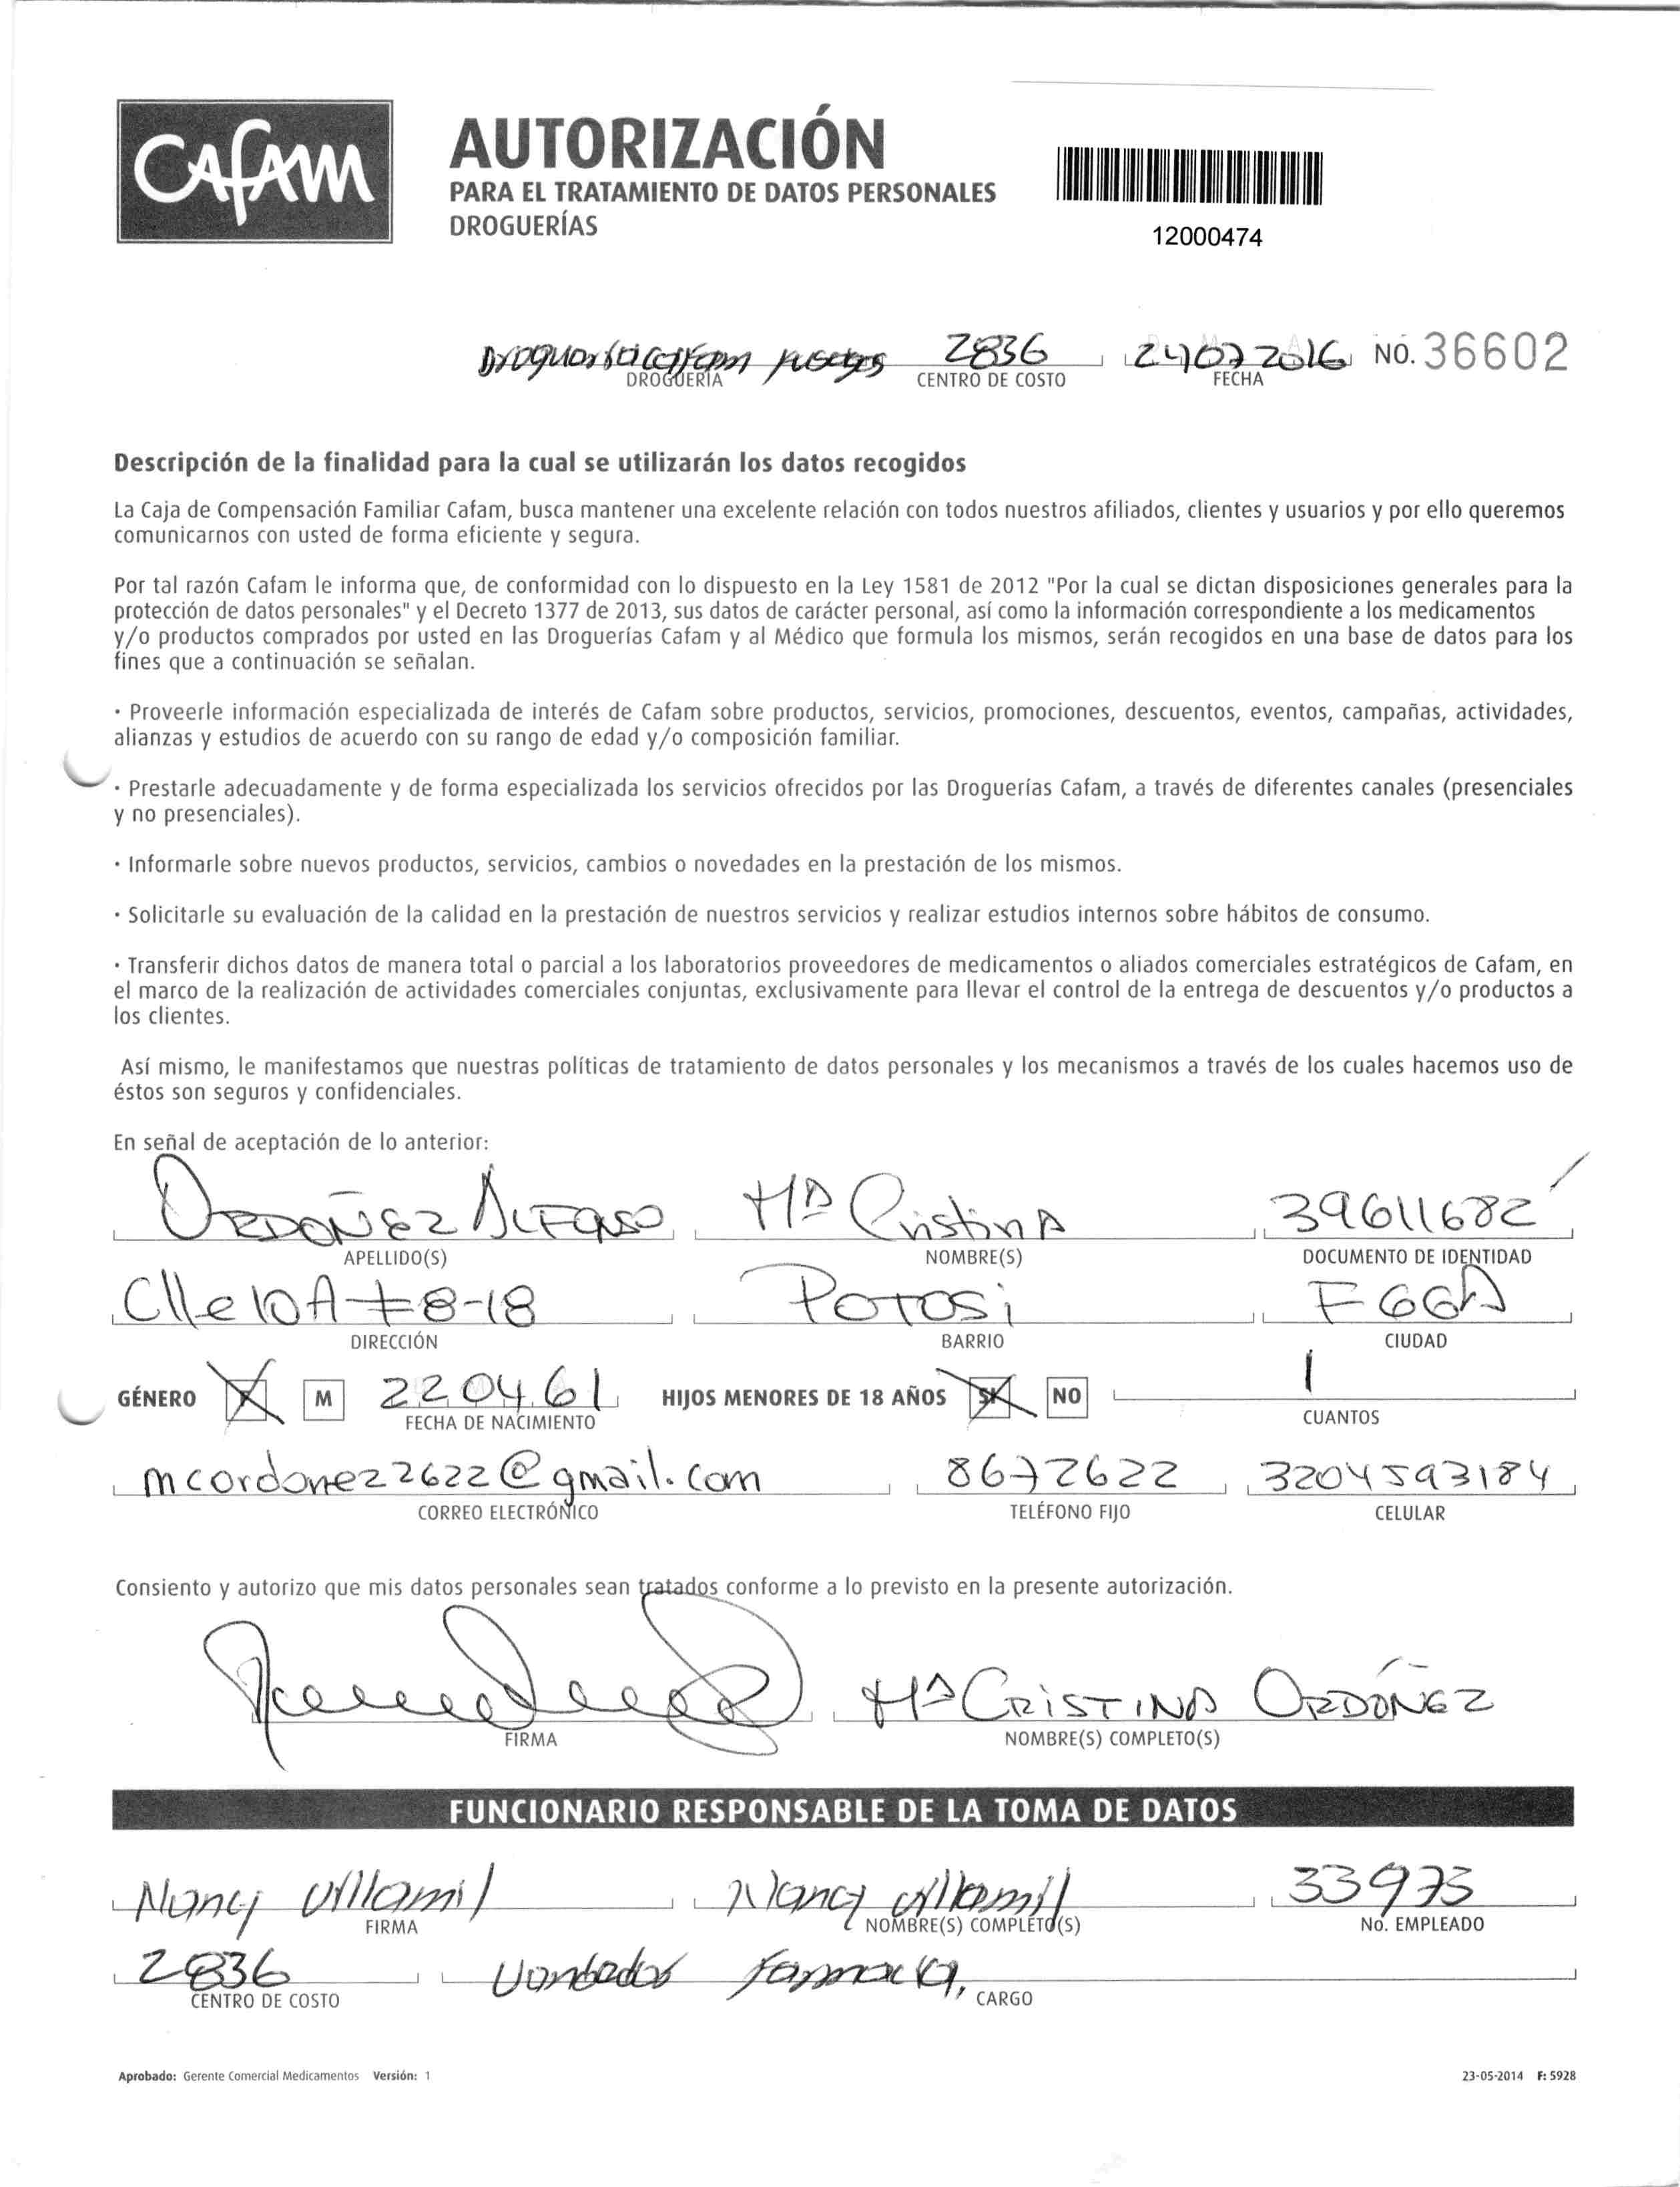 Cafam
AUTORIZACIÓN
PARA EL TRATAMIENTO DE DATOS PERSONALES
DROGUERÍAS
12000474
2836 24072016 NO. 36602
DROGUERÍA CENTRO DE COSTO FECHA
Descripción de la finalidad para la cual se utilizarán los datos recogidos
La Caja de Compensación Familiar Cafam, busca mantener una excelente relación con todos nuestros afiliados, clientes y usuarios y por ello queremos
comunicarnos con usted de forma eficiente y segura.
Por tal razón Cafam le informa que, de conformidad con lo dispuesto en la Ley 1581 de 2012 "Por la cual se dictan disposiciones generales para la
protección de datos personales" y el Decreto 1377 de 2013, sus datos de carácter personal, así como la información correspondiente a los medicamentos
y/o productos comprados por usted en las Droguerías Cafam y al Médico que formula los mismos, serán recogidos en una base de datos para los
fines que a continuación se señalan.
· Proveerle información especializada de interés de Cafam sobre productos, servicios, promociones, descuentos, eventos, campañas, actividades,
alianzas y estudios de acuerdo con su rango de edad y/o composición familiar.
· Prestarle adecuadamente y de forma especializada los servicios ofrecidos por las Droguerías Cafam, a través de diferentes canales (presenciales
y no presenciales).
· Informarle sobre nuevos productos, servicios, cambios o novedades en la prestación de los mismos.
· Solicitarle su evaluación de la calidad en la prestación de nuestros servicios y realizar estudios internos sobre hábitos de consumo.
· Transferir dichos datos de manera total o parcial a los laboratorios proveedores de medicamentos o aliados comerciales estratégicos de Cafam, en
el marco de la realización de actividades comerciales conjuntas, exclusivamente para llevar el control de la entrega de descuentos y/o productos a
los clientes.
Así mismo, le manifestamos que nuestras políticas de tratamiento de datos personales y los mecanismos a través de los cuales hacemos uso de
éstos son seguros y confidenciales.
En señal de aceptación de lo anterior:
ORDOÑEZ ALFONSO Mª Cristina 39611682
APELLIDO(S) NOMBRE(S) DOCUMENTO DE IDENTIDAD
Clle 10A # 8-18 POTOSi FGGA
DIRECCIÓN BARRIO CIUDAD
GÉNERO F M 220461 HIJOS MENORES DE 18 AÑOS SI NO 1
FECHA DE NACIMIENTO CUANTOS
mcordonez2622@gmail.com 8672622 3204593184
CORREO ELECTRÓNICO TELÉFONO FIJO CELULAR
Consiento y autorizo que mis datos personales sean tratados conforme a lo previsto en la presente autorización.
Mª CRISTINA ORDOÑEZ
FIRMA NOMBRE(S) COMPLETO(S)
FUNCIONARIO RESPONSABLE DE LA TOMA DE DATOS
Nancy Villamil Nancy Villamil 33973
FIRMA NOMBRE(S) COMPLETO(S) No. EMPLEADO
2836
CENTRO DE COSTO CARGO
Aprobado: Gerente Comercial Medicamentos Versión: 1 23-05-2014 F: 5928